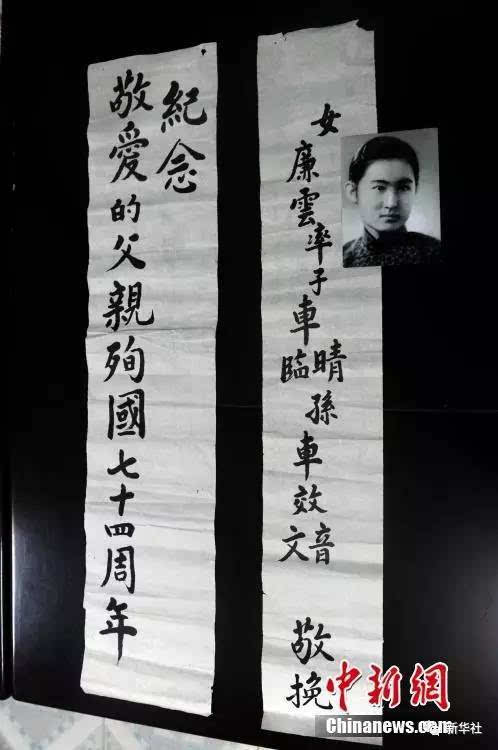 紀念
敬愛的父親殉國七十四周年
女廉雲率子車晴臨孫車效音文敬挽
中新網
Chinanews.com
新华社